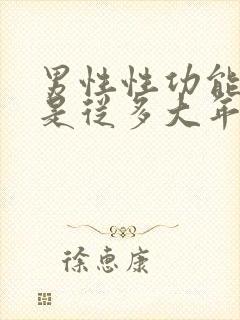 男性性功能
是从多大年
徐惠康